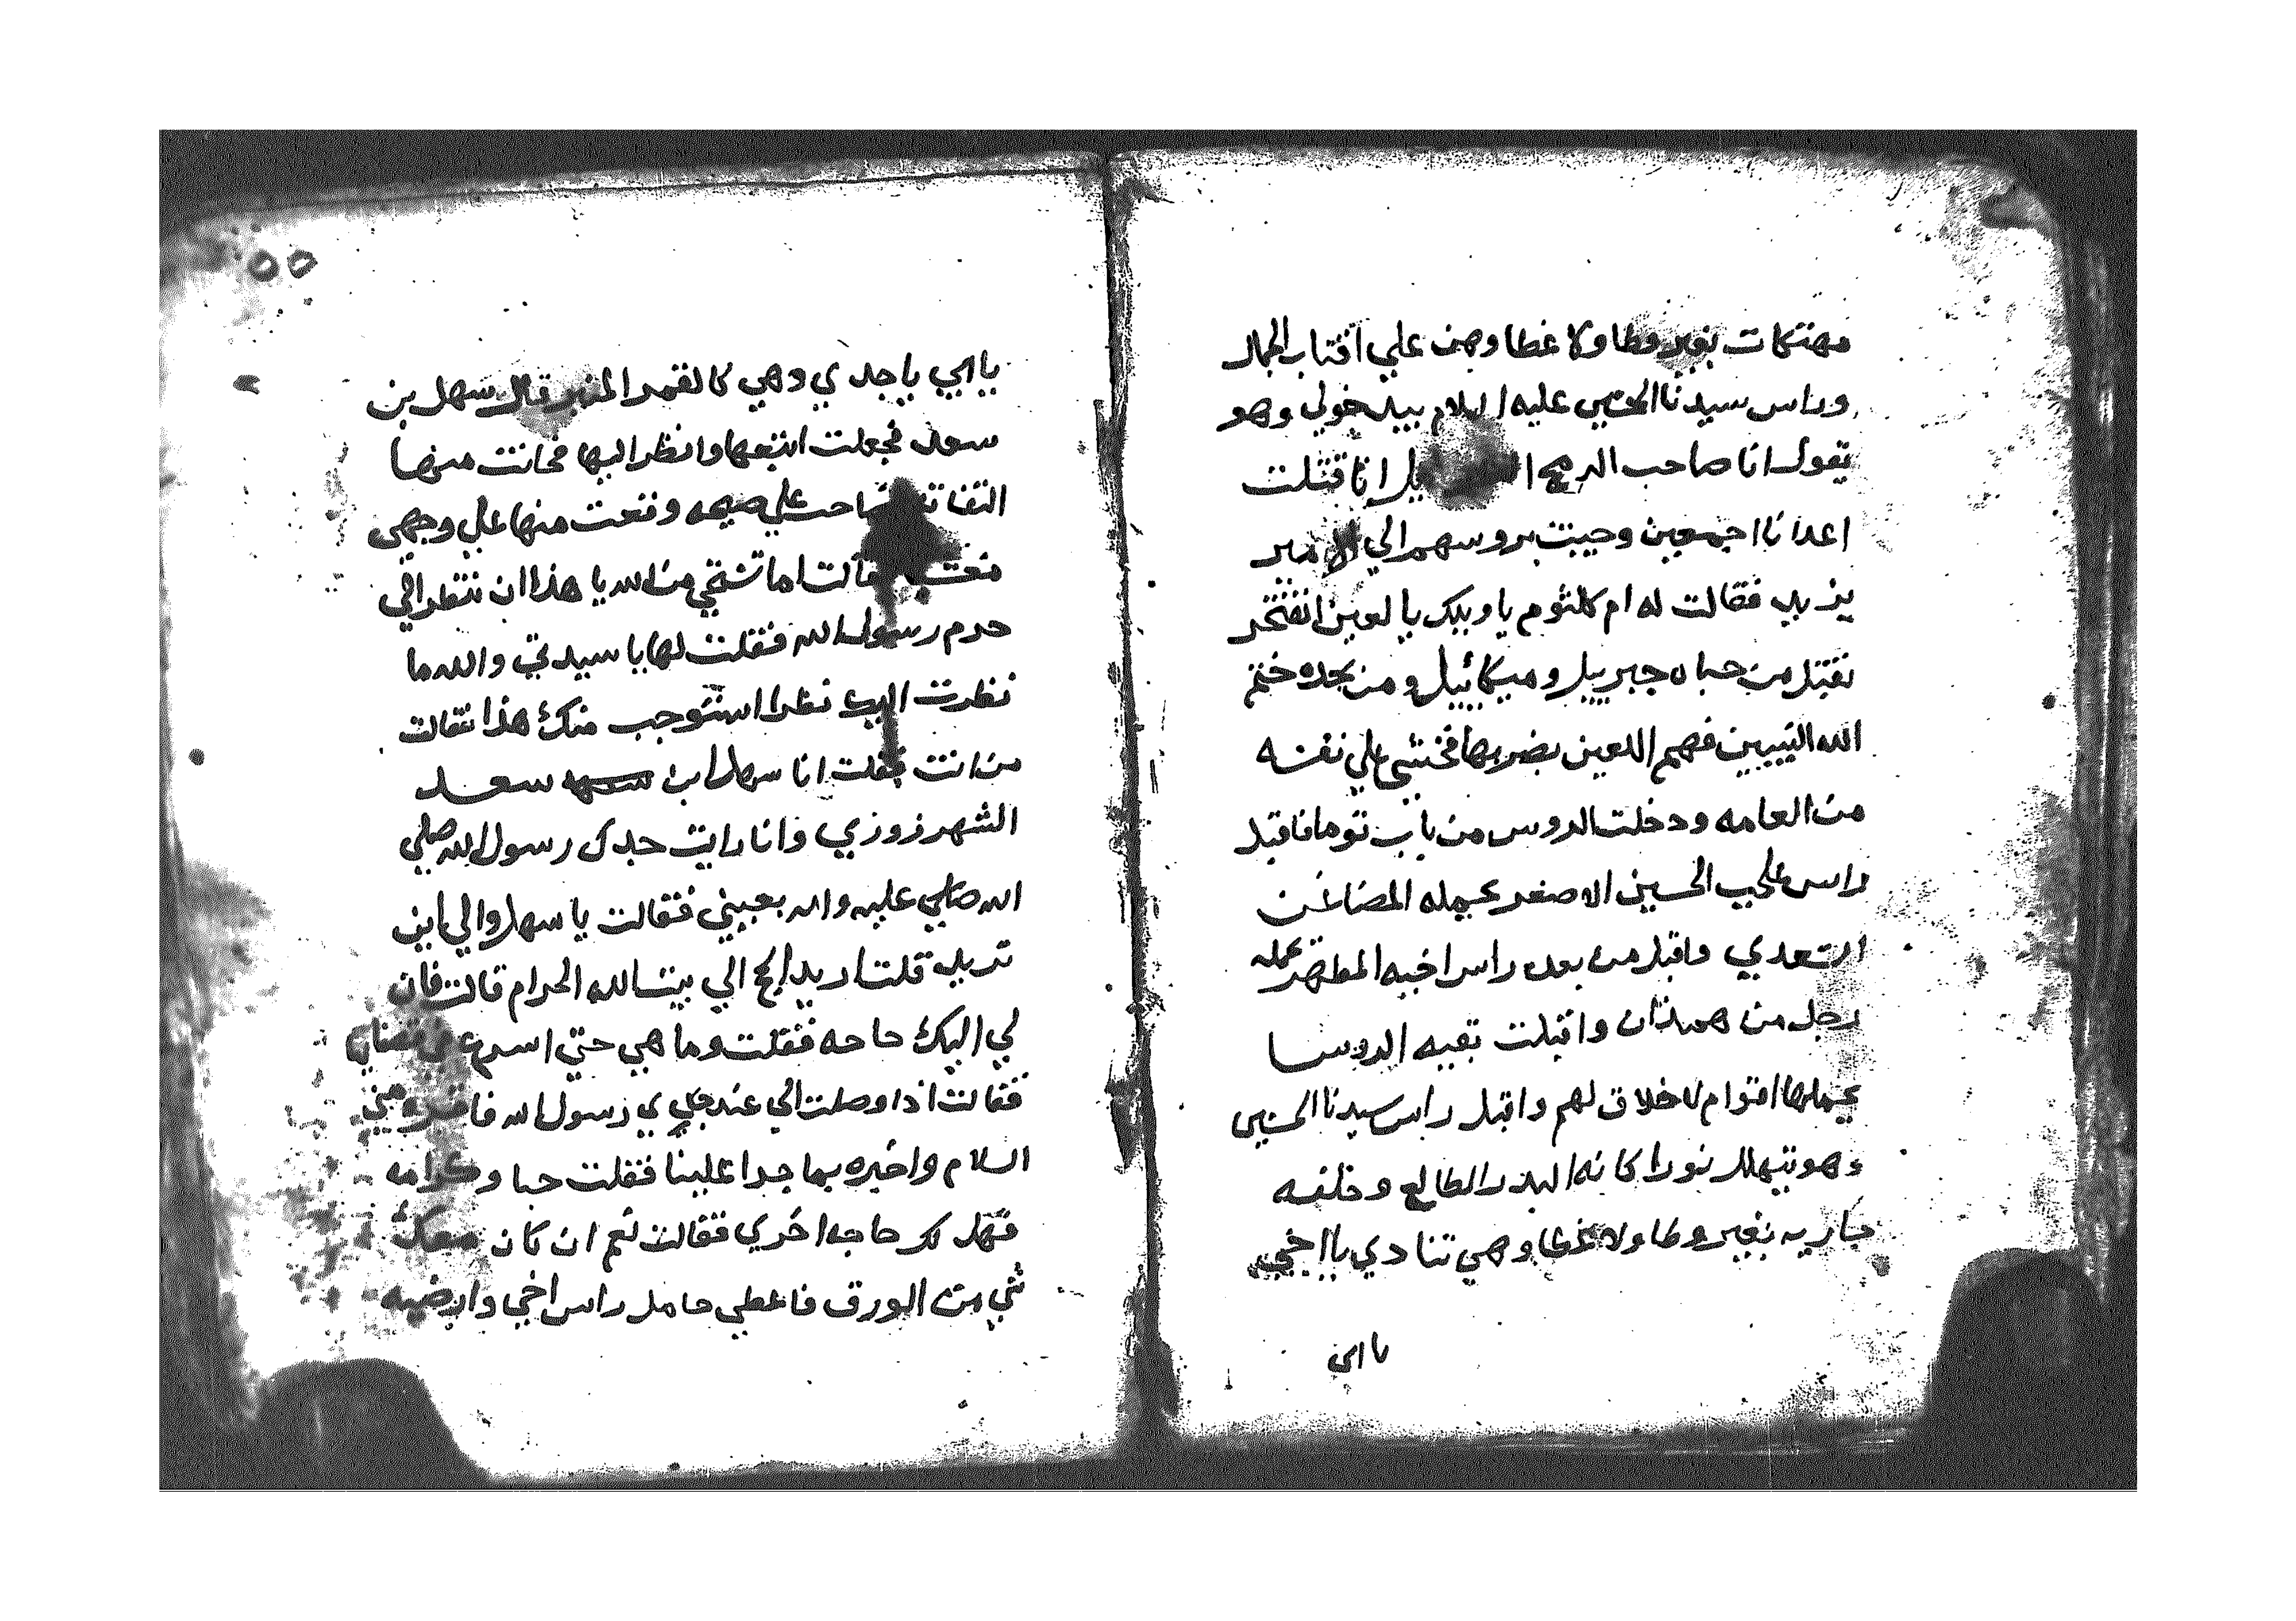 مهتكات بغير وطا ولا غطا وهن علي اقتاب الجمال
وراس سيدنا الحسين عليه السلام بيد خولي وهو
يقول انا صاحب الرمح انا قتلت
اعدانا اجمعين وجيت بروسهم الي الامير
يزيد فقالت له ام كلثوم يا ويلك يا لعين اتفتخر
بقتل من حباه جبرييل وميكائيل ومن بجده ختم
الله النبيين فهم اللعين بضربها فخشي علي نفسه
من العامه ودخلت الروس من باب توما فاقبل
راس علي بن الحسين الاصغر يحمله
السعدي واقبل من بعده راس اخيه المطهر يحمله
رجل من همدان واقبلت بقيه الروسا
يحملها اقوام لا خلاق لهم واقبل راس سيدنا الحسين
وهو يتهلل نورا كانه البدر الطالع وخلفه
جاريه بغير وطا ولا غطا وهي تنادي يا اخي
يا ابي
٥٥
يا ابي يا جدي وهي كالقمر المنير قال سهل بن
سعد فجعلت اتبعها وانظر اليها فحانت منها
التفاته صاحت علي صيحه وقعت منها علي وجهي
قالت اما تستحي من الله يا هذا ان تنظر الي
حرم رسول الله فقلت لها يا سيدتي والله ما
نظرت اليك نظرا استوجب منك هذا فقالت
من انت فقلت انا سهل ابن سعد
الشهرزوزي وانا رايت جدك رسول الله صلي
الله صلي عليه واله بعيني فقالت يا سهل والي اين
تريد قلت اريد الحج الي بيت الله الحرام قالت فان
لي اليك حاجه فقلت وما هي حتي اسرع في قضايها
فقالت اذا وصلت الي عند جدي رسول الله فاقريه مني
السلام واخبره بما جرا علينا فقلت حبا وكرامه
فهل لك حاجه اخري فقالت نعم ان كان معك
شي من الورق فاعطي حامل راس اخي وارضيه